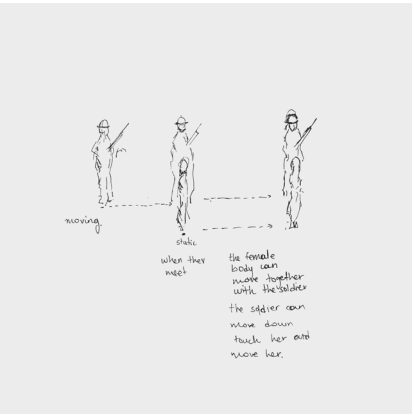 moving.
static
when they
meet
the female
body can
move together
with the soldier
the soldier can
move down
touch her and
move her.